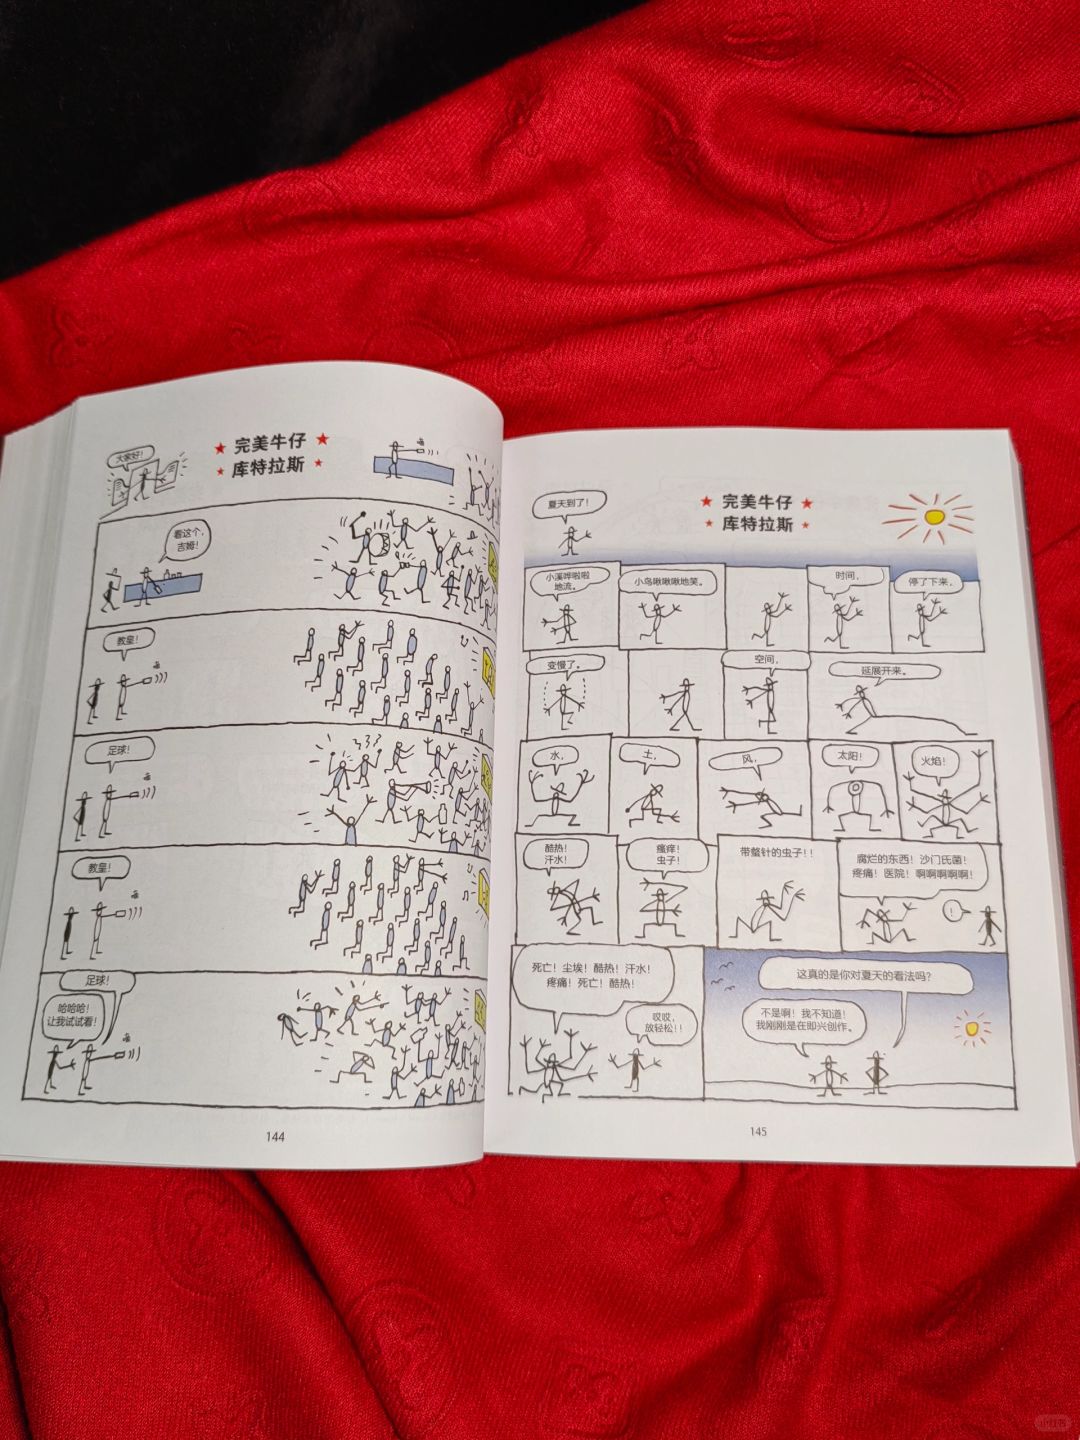 大家好!
完美牛仔
库特拉斯
看这个,
吉姆!
教皇!
足球!
教皇!
足球!
哈哈哈!
让我试试看!
144
夏天到了!
完美牛仔
库特拉斯
小溪哗啦啦
地流。
小鸟啾啾啾地笑。
时间,
停了下来,
变慢了。
空间,
延展开来。
水,
土,
风,
太阳!
火焰!
酷热!
汗水!
瘙痒!
虫子!
带螫针的虫子!!
腐烂的东西!沙门氏菌!
疼痛!医院!啊啊啊啊啊!
!
死亡!尘埃!酷热!汗水!
疼痛!死亡!酷热!
哎哎,
放轻松!!
这真的是你对夏天的看法吗?
不是啊!我不知道!
我刚刚是在即兴创作。
145
小红书